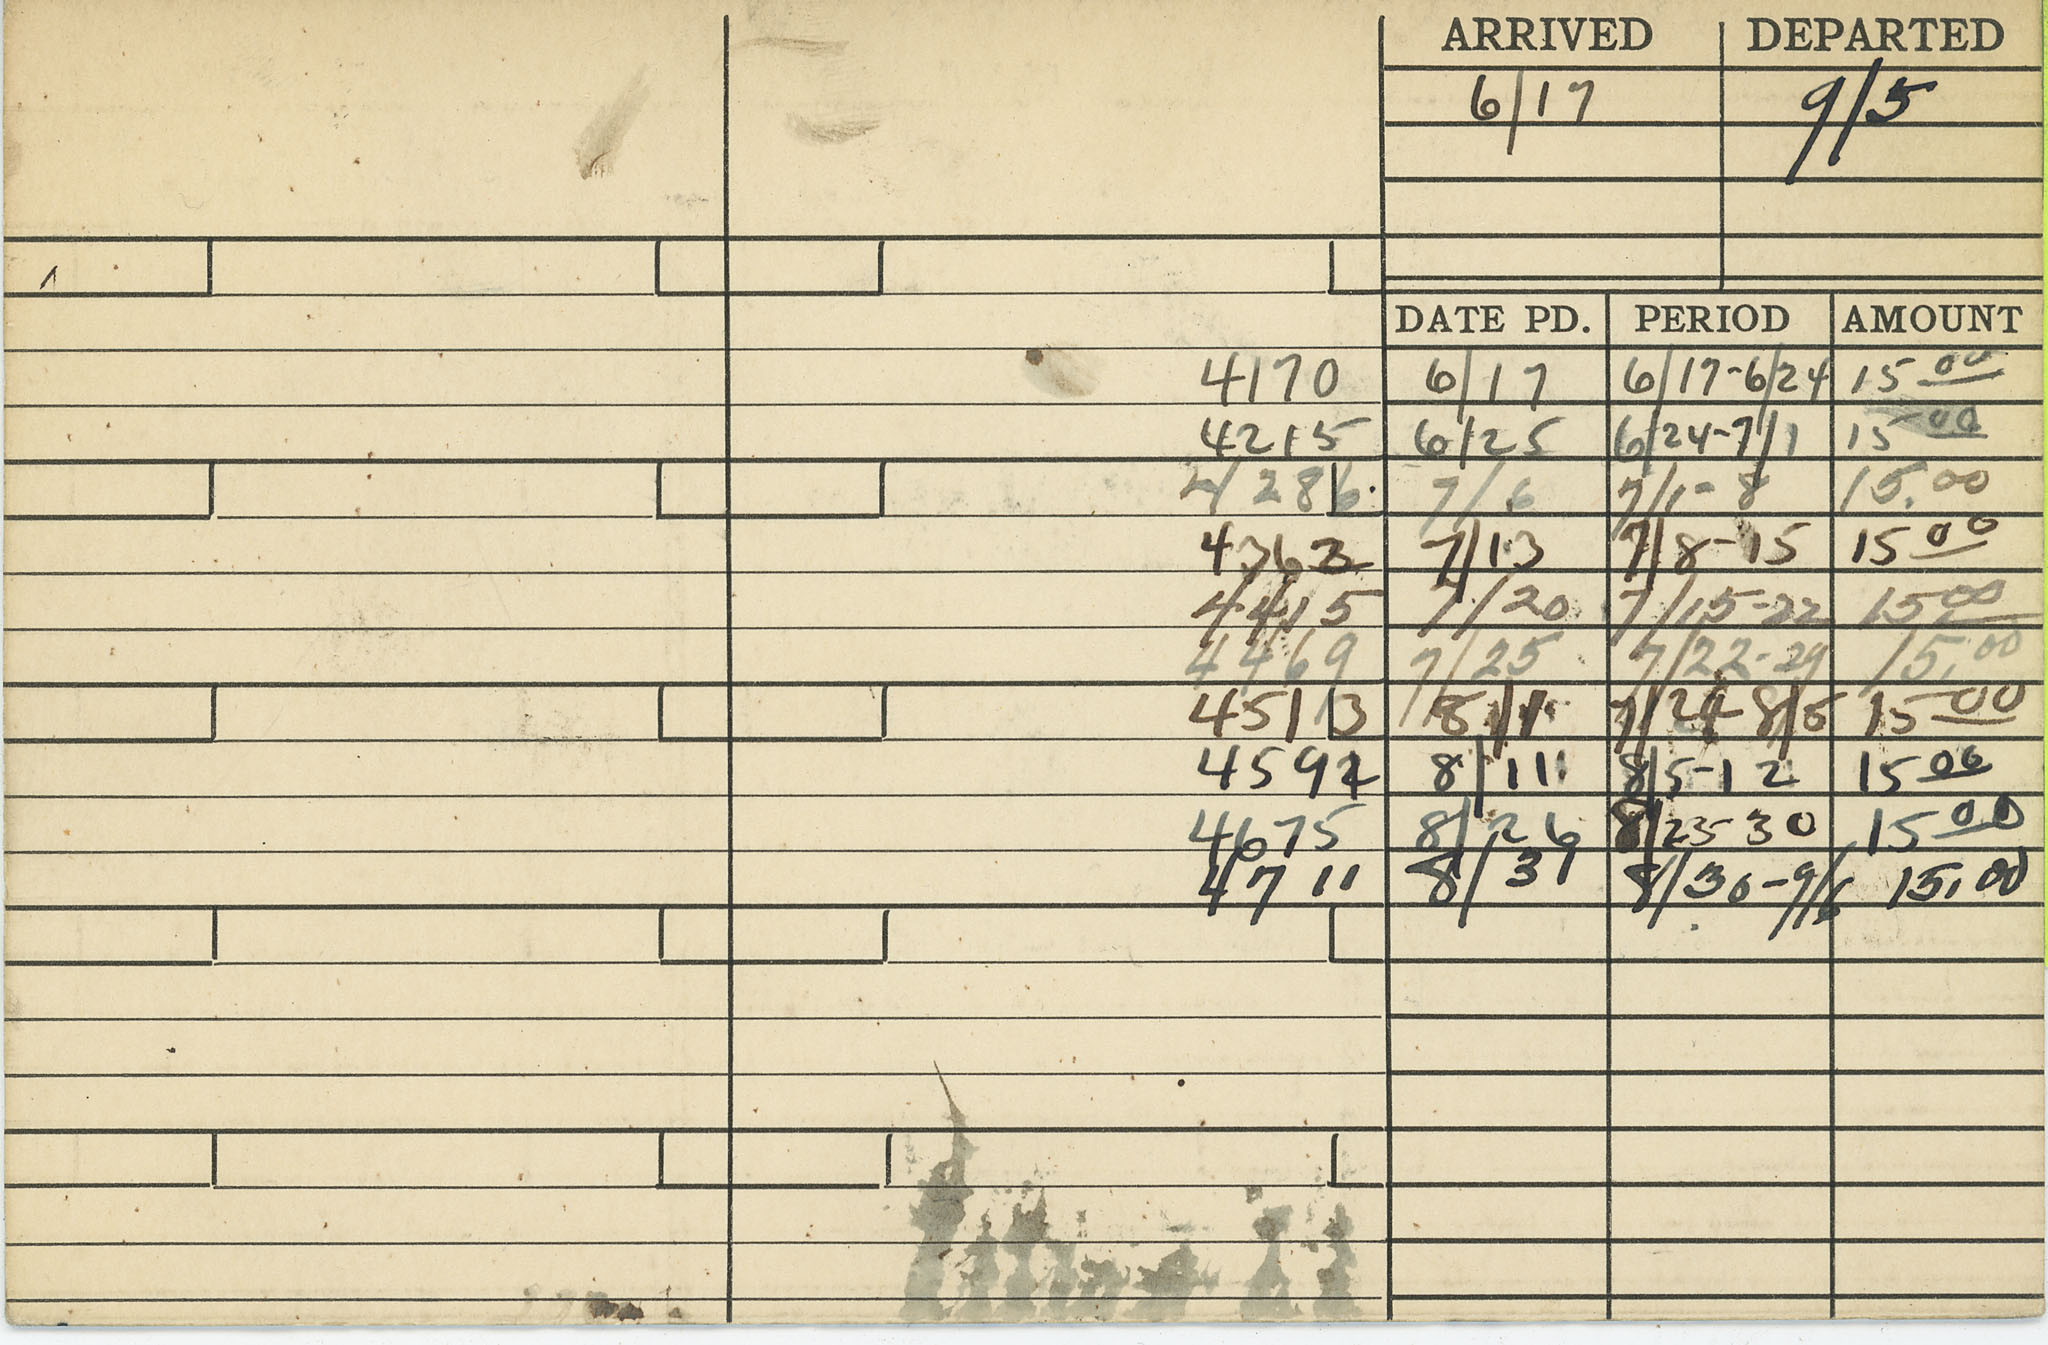 ARRIVED DEPARTED
6/17 9/5
DATE PD. PERIOD AMOUNT
4170 6/17 6/17-6/24 15 00
4215 6/25 6/24-7/1 15 00
4286 7/6 7/1-8 15.00
4362 7/13 7/8-15 15 00
4415 7/20 7/15-22 15 00
4469 7/25 7/22-29 15.00
4513 8/1 8/5 15 00
8/11 8/5-12 15 00
4675 8/26 8/23-30 15 00
4711 8/31 8/30-9/6 15.00